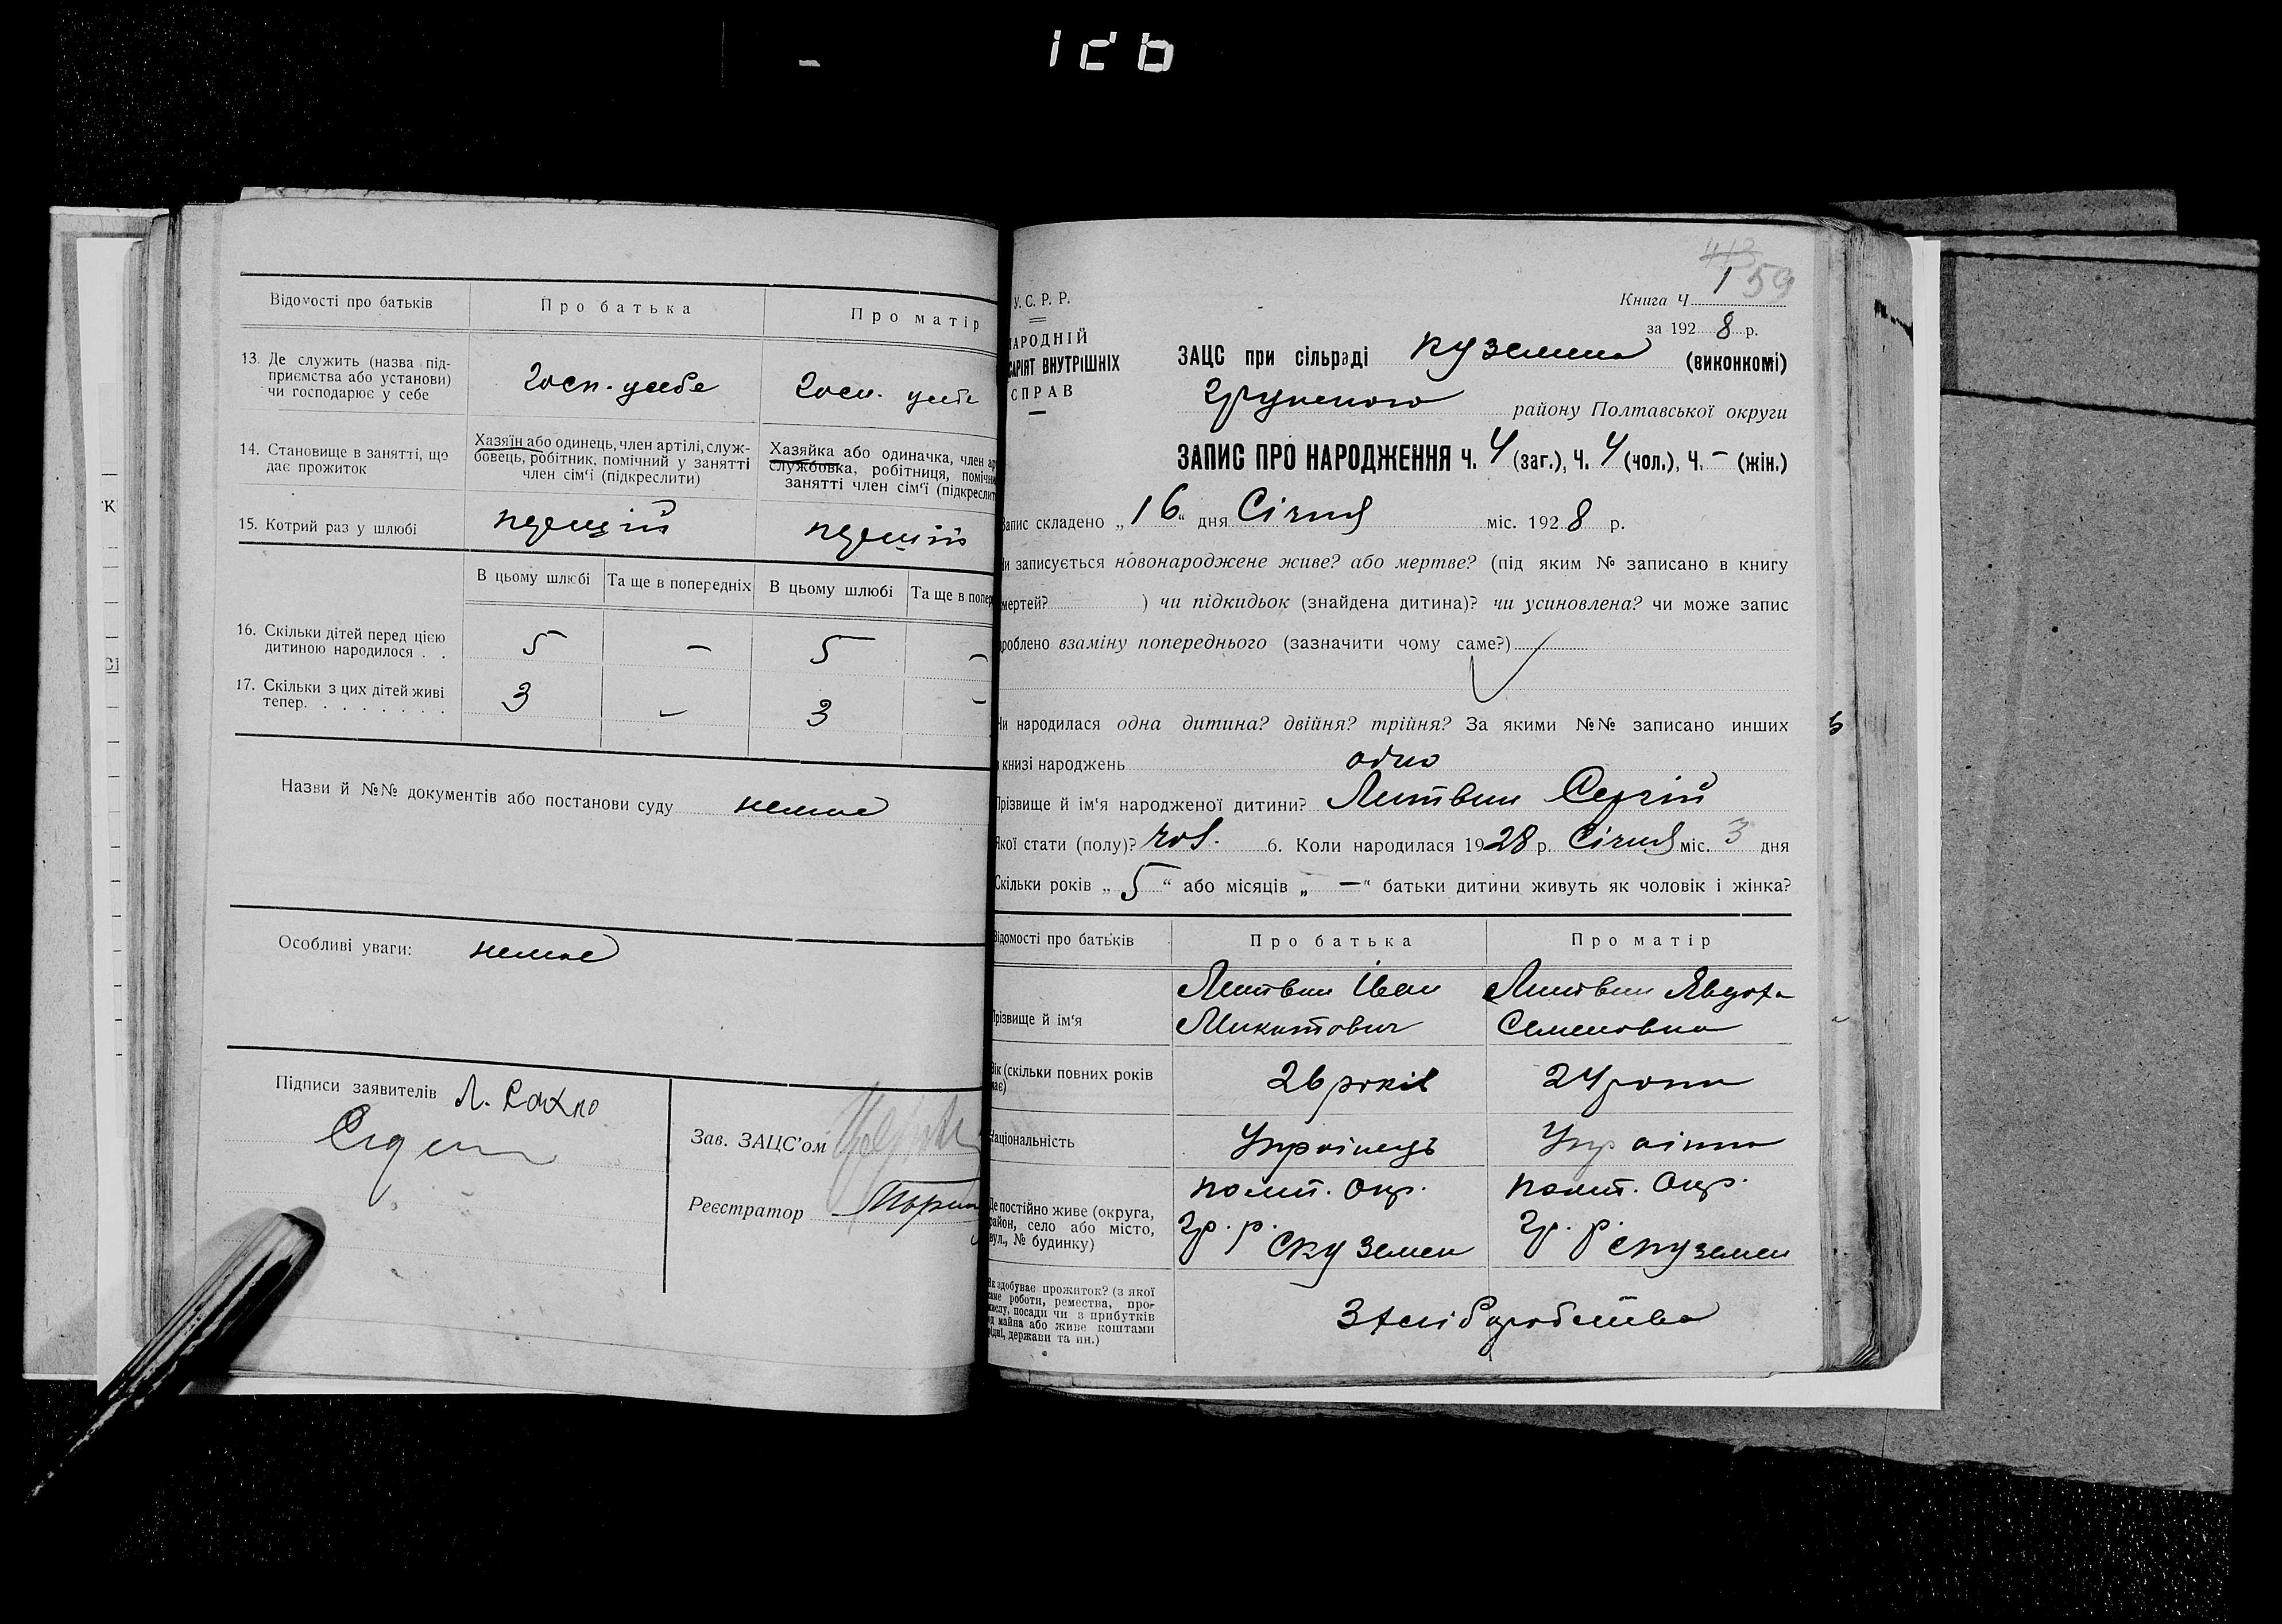 Відомості про батьків
Про батька
Про матір
13. Де служить (назва під-
приємства або установи)
чи господарює у себе
Госп. у себе
Госп. у себе
14. Становище в занятті, що
дає прожиток
Хазяїн або одинець, член артілі, служ-
бовець, робітник, помічний у занятті
член сім'ї (підкреслити)
Хазяйка або одиначка, член ар
службовка, робітниця, помічн
занятті член сім'ї (підкреслит
15. Котрий раз у шлюбі
перший
перший
В цьому шлюбі
Та ще в попередніх
В цьому шлюбі
Та ще в попер
16. Скільки дітей перед цією
дитиною народилося . .
5 – 5 –
17. Скільки з цих дітей живі
тепер. . . . . . . .
3 – 3 –
Назви й №№ документів або постанови суду немає
Особливі уваги: немає
Підписи заявителів Л.
Зав. ЗАЦС'ом
Реєстратор
У.С.Р.Р.
НАРОДНІЙ
САРІЯТ ВНУТРІШНІХ
СПРАВ
159
Книга Ч. 1
за 1928 р.
ЗАЦС при сільраді Куземина (виконкомі)
Грунського району Полтавської округи
ЗАПИС ПРО НАРОДЖЕННЯ Ч. 4 (заг.), Ч. 4 (чол.), Ч. – (жін.)
Запис складено „16" дня Січня міс. 1928 р.
Чи записується новонароджене живе? або мертве? (під яким № записано в книгу
смертей? ) чи підкидьок (знайдена дитина)? чи усиновлена? чи може запис
зроблено взаміну попереднього (зазначити чому саме?)
Чи народилася одна дитина? двійня? трійня? За якими №№ записано инших
в книзі народжень одно
Прізвище й ім'я народженої дитини? Литвин Сергій
Якої стати (полу)? чол. 6. Коли народилася 1928 р. Січня міс. 3 дня
Скільки років „5" або місяців „–" батьки дитини живуть як чоловік і жінка?
Відомості про батьків
Про батька
Про матір
Прізвище й ім'я
Литвин Іван
Микитович
Литвин Явдоха
Семеновна
Вік (скільки повних років
має)
26 років
24 роки
Національність
Українець
Українка
Де постійно живе (округа,
район, село або місто,
вул., № будинку)
Полт. Окр.
Гр. р. с Куземен
Полт. Окр.
Гр. р с Куземен
Як здобуває прожиток? (з якої
саме роботи, ремества, про-
мислу, посади чи з прибутків
од майна або живе коштами
рідні, держави та ин.)
З хліборобства